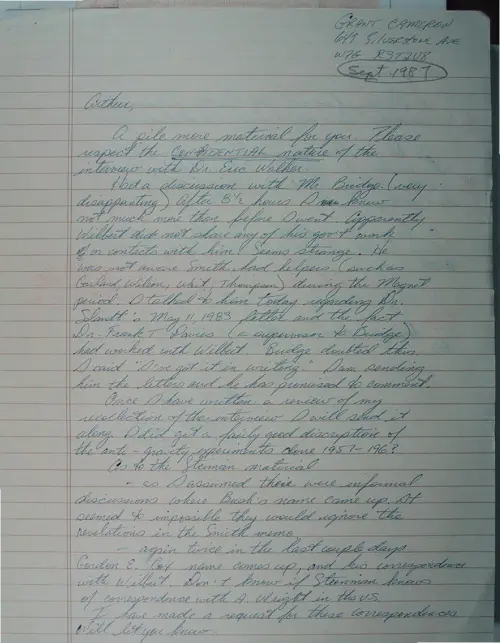 GRANT CAMERON
649 SILVERSTONE AVE
WPG R3T2V8
Sept 1987
Arthur,
A pile more material for you. Please
respect the CONFIDENTIAL nature of the
interview with Dr. Eric Walker
Had a discussion with Mr Bridge. (very
disappointing) After 3½ hours I knew
not much more then before I went. Apparently
Wilbert did not share any of his gov't work
or contacts with him! Seems strange. He
was not aware Smith had helpers (such as
Garland, Wilson, Whit, Thompson) during the Magnet
period. I talked to him today regarding Dr.
May 11, 1983 letter and the fact
Dr. Frank T Davies (a supervisor to Bridge)
had worked with Wilbert. Bridge doubted this
I said "I've got it in writing." I am sending
him the letters and he has promised to comment.
Once I have written a review of my
recollection of the interview I will send it
along. I did get a fairly good discription of
the anti-gravity experiments done 1957-1963
As to the Steinman material
- as I assumed their were informal
discussions where Bush's name came up. It
seemed to impossible they would ignore the
revelations in the Smith memo.
- again twice in the last couple days
Gordon E. Cox name comes up, and his correspondence
with Wilbert. Don't know if Steinman knows
of correspondence with A. Wright in the U.S.
I have made a request for these correspondences
Will let you know.